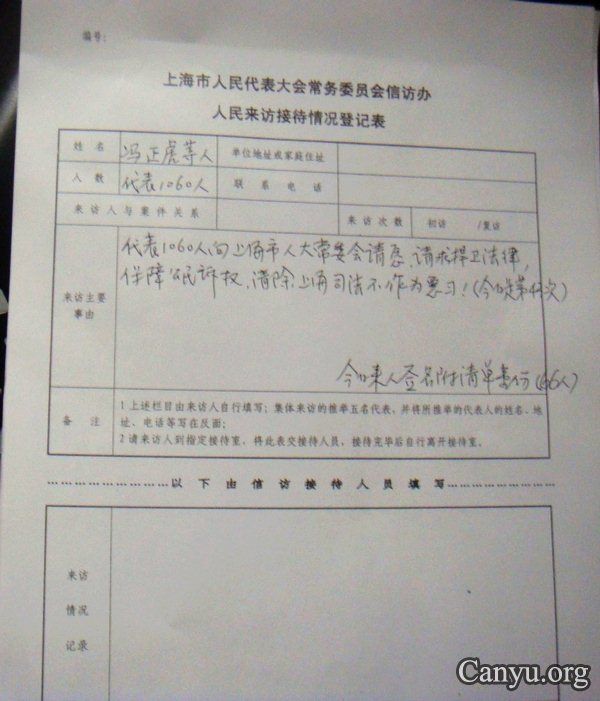 编号:
上海市人民代表大会常务委员会信访办
人民来访接待情况登记表
姓名 冯正虎等人 单位地址或家庭住址
人数 代表1060人 联系电话
来访人与案件关系 来访次数 初访 /复访
来访主要事由
代表1060人向上海市人大常委会请愿,请求捍卫法律,
保障公民诉权,清除上海司法不作为恶习!(今日是第 次)
今日来人签名附清单壹份(66人)
备注
1 上述栏目由来访人自行填写;集体来访的推举五名代表,并将所推举的代表人的姓名、地
址、电话等写在反面;
2 请来访人到指定接待室,将此表交接待人员,接待完毕后自行离开接待室。
以下由信访接待人员填写
来访
情况
记录
Canyu.org